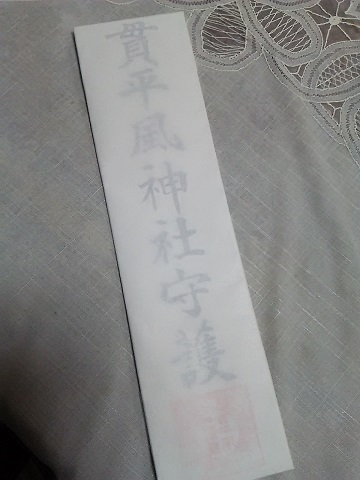 貫平風神社守護